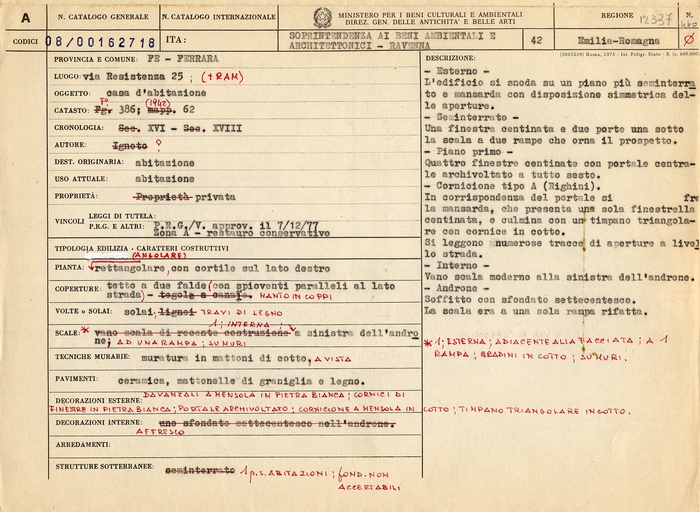 A
N. CATALOGO GENERALE
N. CATALOGO INTERNAZIONALE
MINISTERO PER I BENI CULTURALI E AMBIENTALI
DIREZ. GEN. DELLE ANTICHITA' E BELLE ARTI
REGIONE 12337
N.
CODICI 08/00162718
ITA:
SOPRINTENDENZA AI BENI AMBIENTALI E
ARCHITETTONICI - RAVENNA
42
Emilia-Romagna
Ø
(3605239) Roma, 1975 - Ist. Poligr. Stato - S. (c. 400.000)
PROVINCIA E COMUNE: FE - FERRARA
LUOGO: via Resistenza 25 ; (TRAM)
OGGETTO: casa d'abitazione
CATASTO: Fg. F° 386; (1942) mapp. 62
CRONOLOGIA: Sec. XVI - Sec. XVIII
AUTORE: Ignoto ?
DEST. ORIGINARIA: abitazione
USO ATTUALE: abitazione
PROPRIETÀ: Proprietà privata
VINCOLI LEGGI DI TUTELA:
P.R.G. E ALTRI: P.R.G./V. approv. il 7/12/77
Zona A - restauro conservativo
TIPOLOGIA EDILIZIA - CARATTERI COSTRUTTIVI
(ANGOLARE)
PIANTA: rettangolare, con cortile sul lato destro
COPERTURE: tetto a due falde (con spioventi paralleli al lato
strada) - tegole a canale. MANTO IN COPPI
VOLTE o SOLAI: solai lignei TRAVI DI LEGNO
1; INTERNA;
SCALE: * vano scala di recente costruzione a sinistra dell'andro
ne; AD UNA RAMPA; SU MURI
TECNICHE MURARIE: muratura in mattoni di cotto, A VISTA
PAVIMENTI: ceramica, mattonelle di graniglia e legno.
DECORAZIONI ESTERNE: DAVANZALI A MENSOLA IN PIETRA BIANCA; CORNICI DI
FINESTRE IN PIETRA BIANCA; PORTALE ARCHIVOLTATO; CORNICIONE A MENSOLA IN COTTO; TIMPANO TRIANGOLARE IN COTTO.
DECORAZIONI INTERNE: uno sfondato settecentesco nell'androne.
AFFRESCO
ARREDAMENTI:
STRUTTURE SOTTERRANEE: seminterrato 1 p.s. ABITAZIONI; FOND. NON
ACCERTABILI
DESCRIZIONE:
- Esterno -
L'edificio si snoda su un piano più seminterra
to e mansarda con disposizione simmetrica del-
le aperture.
- Seminterrato -
Una finestra centinata e due porte una sotto
la scala a due rampe che orna il prospetto.
- Piano primo -
Quattro finestre centinate con portale centra-
le archivoltato a tutto sesto.
- Cornicione tipo A (Righini).
In corrispondenza del portale si fre
la mansarda, che presenta una sola finestrella
centinata, e culmina con un timpano triangola-
re con cornice in cotto.
Si leggono numerose tracce di aperture a livel
lo strada.
- Interno -
Vano scala moderno alla sinistra dell'androne.
- Androne -
Soffitto con sfondato settecentesco.
La scala era a una sola rampa rifatta.
* 1; ESTERNA; ADIACENTE ALLA FACCIATA; A 1
RAMPA; GRADINI IN COTTO; SU MURI.